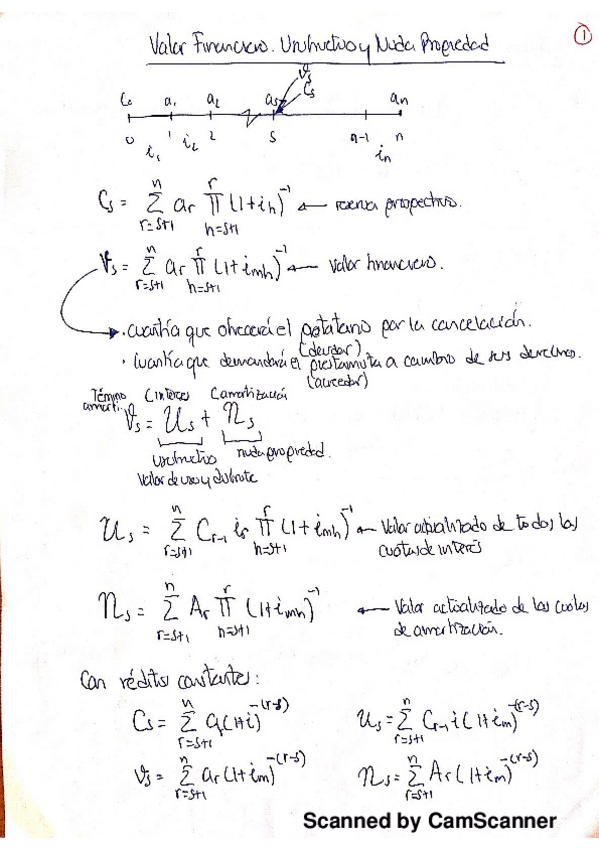 ①
Valor Financiero. Usufructuo y Nuda Propiedad
V_s
C_s
C_0 a_1 a_2 a_s a_n
0 1 2 s n-1 n
i_1 i_2 i_n
C_s = Σ_{r=s+1}^{n} a_r Π_{h=s+1}^{r} (1+i_h)^{-1} ← reserva prospectiva.
V_s = Σ_{r=s+1}^{n} a_r Π_{h=s+1}^{r} (1+i_{mh})^{-1} ← valor financiero.
· cuantía que ofrecerá el prestatario por la cancelación.
(deudor)
· Cuantía que demandará el prestamista a cambio de sus derechos.
(acreedor)
Término amorti. C interés C amortización
V_s = U_s + N_s
usufructo nuda propiedad.
Valor de uso y disfrute
U_s = Σ_{r=s+1}^{n} C_{r-1} i_r Π_{h=s+1}^{r} (1+i_{mh})^{-1} ← Valor actualizado de todos las
cuotas de interés
N_s = Σ_{r=s+1}^{n} A_r Π_{h=s+1}^{r} (1+i_{mh})^{-1} ← Valor actualizado de las cuotas
de amortización.
Con réditos constantes:
C_s = Σ_{r=s+1}^{n} a_r (1+i)^{-(r-s)} U_s = Σ_{r=s+1}^{n} C_{r-1} i (1+i_m)^{-(r-s)}
V_s = Σ_{r=s+1}^{n} a_r (1+i_m)^{-(r-s)} N_s = Σ_{r=s+1}^{n} A_r (1+i_m)^{-(r-s)}
Scanned by CamScanner